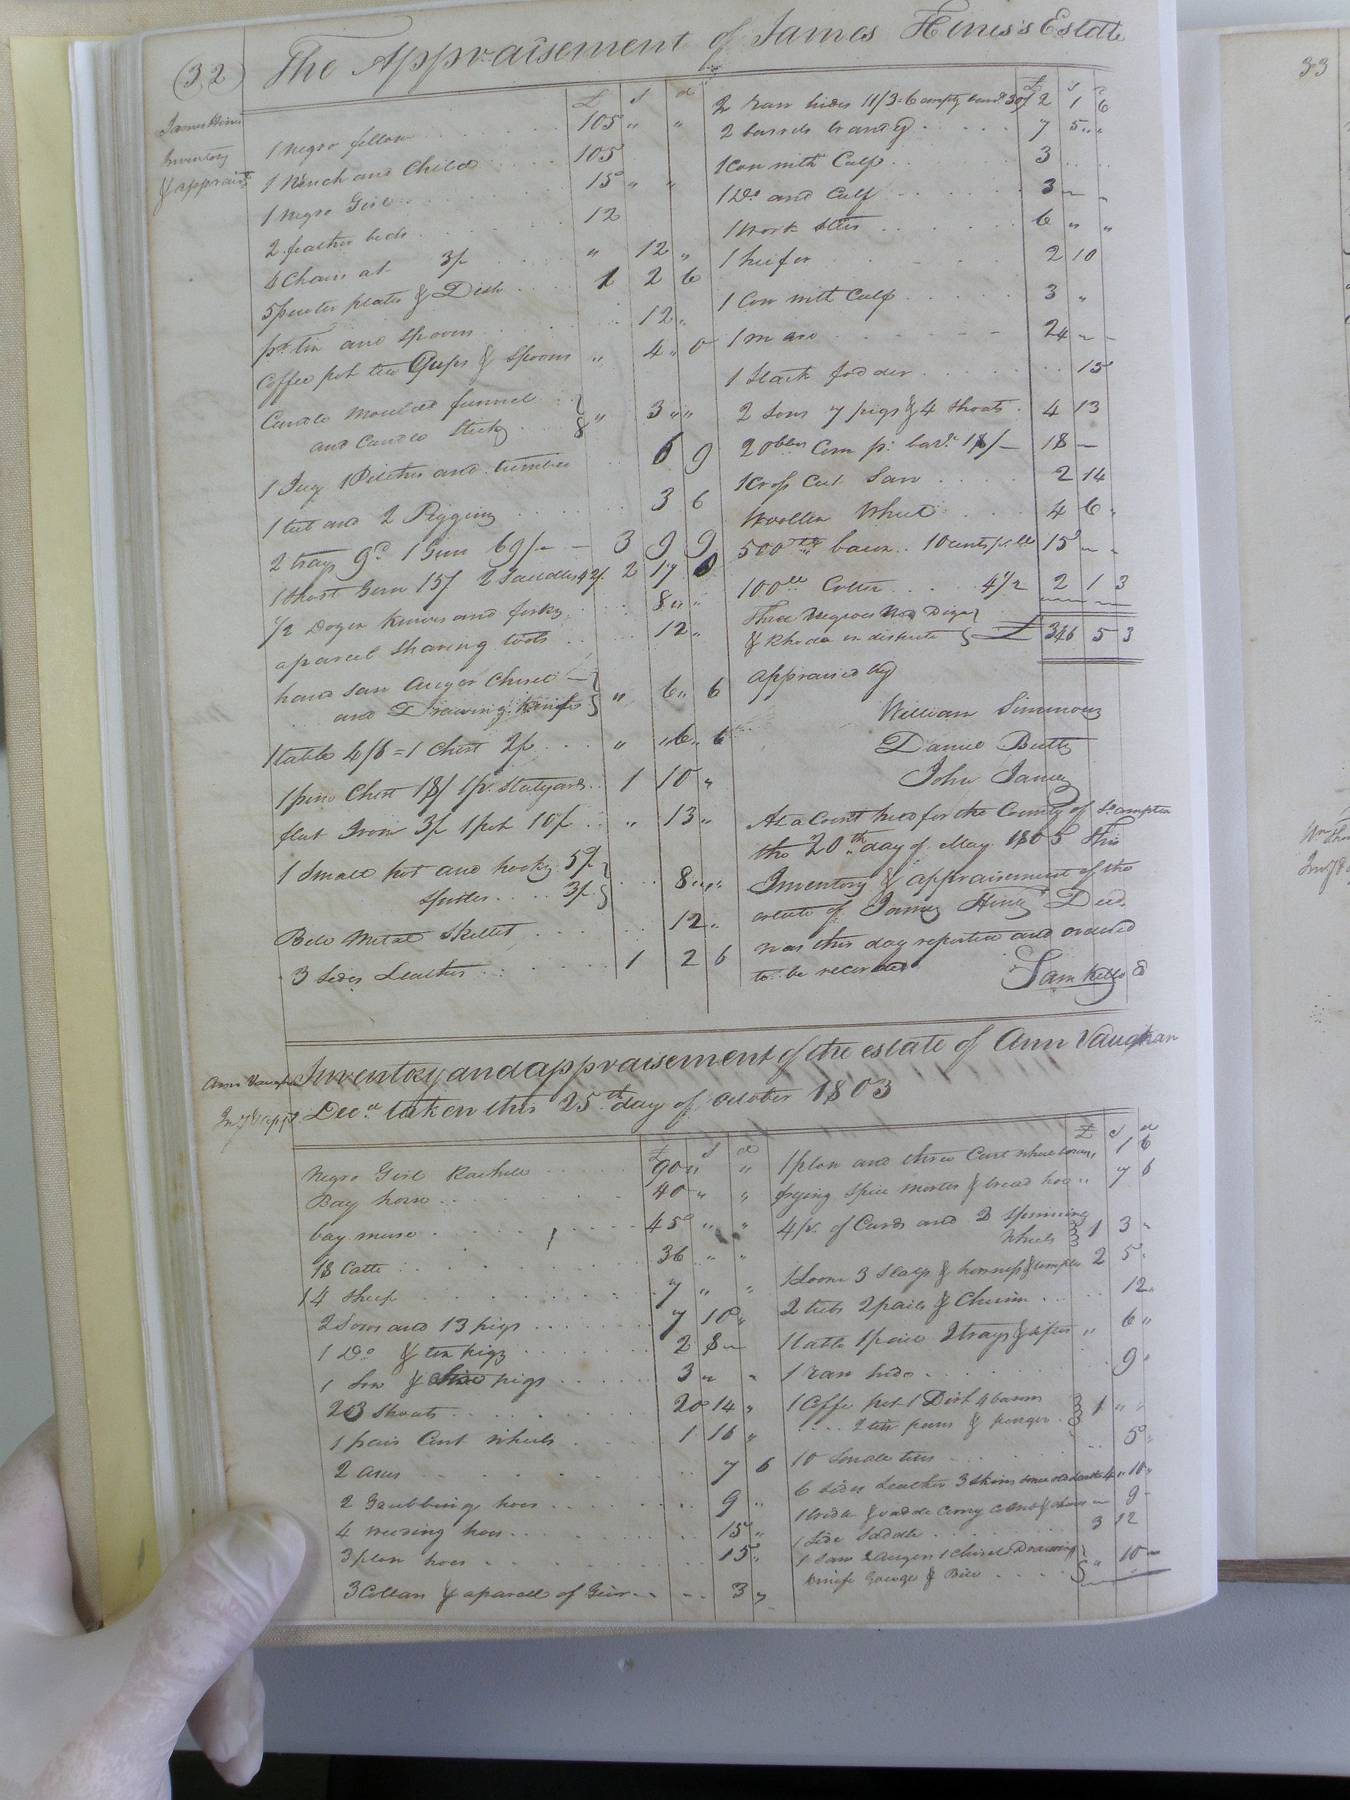 (32) The Appraisement of James Hines's Estate
James Hines
Inventory
& appraist
£ s d
1 negro fellow 105 " "
1 Wench and Child 105
1 negro Girl 15 " "
2 feather beds 12
4 Chairs at 3/ " 12 "
5 pewter plates & Dish 1 2 6
pr tin and spoons 12 "
Coffee pot tea Cups & Spoons " 4 " 0
Candle Moulds funnel
and Candle Sticks " 3 " "
1 Jug 1 Pitcher and tumbler 6 9
1 tub and 2 Piggins 3 6
2 trays 9d. 1 Gun 69/ 3 9 9
1 Short Gun 15/ 2 Saddles 42/ 2 17 0
1/2 Dozen knives and forks 8 " "
a parcel Shaving tools 12 "
hand saw Auger Chisel
and Drawing knife " 6 " 6
1 table 4/6 = 1 Chest 2/ " " 6 " 6
1 pine Chest 18/ 1 pr. Stilyards 1 10 "
flat Iron 3/ 1 pot 10/ " 13 "
1 Small pot and hooks 5/
Spider 3/ 8 " "
Bell Metal Skillet 12 "
3 sides Leather 1 2 6
£ s d
2 raw hides 11/3. 6 empty barrs 30/ 2 1 6
2 barrels brandy 7 5 " "
1 Cow with Calf 3
1 Do. and Calf 3 " "
1 Work Steer 6 " "
1 heifer 2 10
1 Cow with Calf 3 "
1 mare 24 " "
1 Stack fodder 15
2 Sows 7 pigs & 4 Shoats 4 13
20 bbls Corn pr. barl. 18/ 18 —
1 Cross Cut Saw 2 14
Woollen Wheel 4 6 "
500 lb bacon 10 cents pr lb 15 " "
100 lb Cotton 4 1/2 2 1 3
Three Negroes
& Rhoda in dispute £ 346 5 3
appraised by
William Simmons
Daniel Butts
John Janes
At a Court held for the County of So.ampton
the 20th day of May 1805 This
Inventory & appraisement of the
estate of James Hines Decd.
was this day reported and ordered
to be recorded
Sam Kello
Ann Vaughan
Invy & appt
Inventory and appraisement of the estate of Ann Vaughan
Decd taken this 25th day of October 1803
£ s d
Negro Girl Rachel 90 " "
Bay horse 40 " "
bay mare 45 " "
18 Cattle 36 " "
14 Sheep 7 " "
2 Sows and 13 pigs 7 10 "
1 Do. & ten pigs 2 8 "
1 Sow & pigs 3 " "
23 Shoats 20 14 "
1 pair Cart wheels 1 16 "
2 axes 7 6
2 Grubbing hoes 9 "
4 weeding hoes 15 "
3 plow hoes 15 "
3 Collars & a parcell of Gear 3 "
£ s d
1 plow and three Cart wheel boxes " 1 6
frying Spice mortar & bread hoe " 7 6
4 pr. of Cards and 2 Spinning
Wheels 1 3 "
1 Loom 3 Slays & harness & temples 2 5 "
2 tubs 2 pails & Churn 12 "
1 table 1 pine 2 trays & sifter " 6 "
1 raw hide 9 "
1 Coffe pot 1 Dish 4 basons
2 tin pans & 1 " "
10 Small tins 5 "
6 sides Leather 3 Skins some old Leather 4 " 10 "
1 bridle & saddle Curry Comb & 9
1 Side Saddle 3 12
1 Saw 2 Augers 1 Chisel Drawing
knife Gouge & " 10 —
33